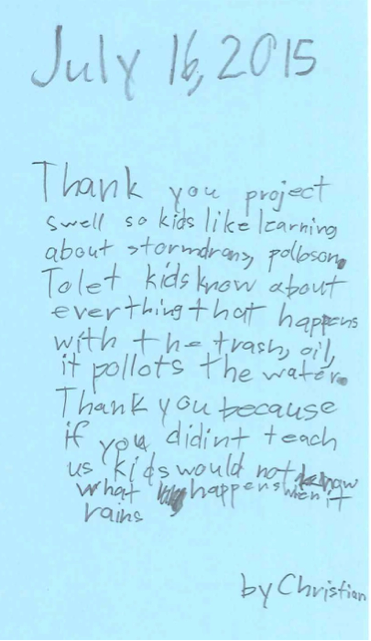 July 16, 2015
Thank you project
swell so kids like learning
about stormdrans, polloson.
To let kids know about
everthing that happens
with the trash, oil,
it pollots the water.
Thank you because
if you didint teach
us kids would not know
what happens when it
rains
by Christian